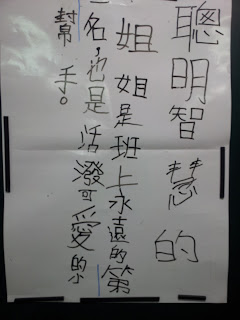 聰明智慧的
姐姐是班上永遠的第
一名,也是活潑可愛的小
幫手。